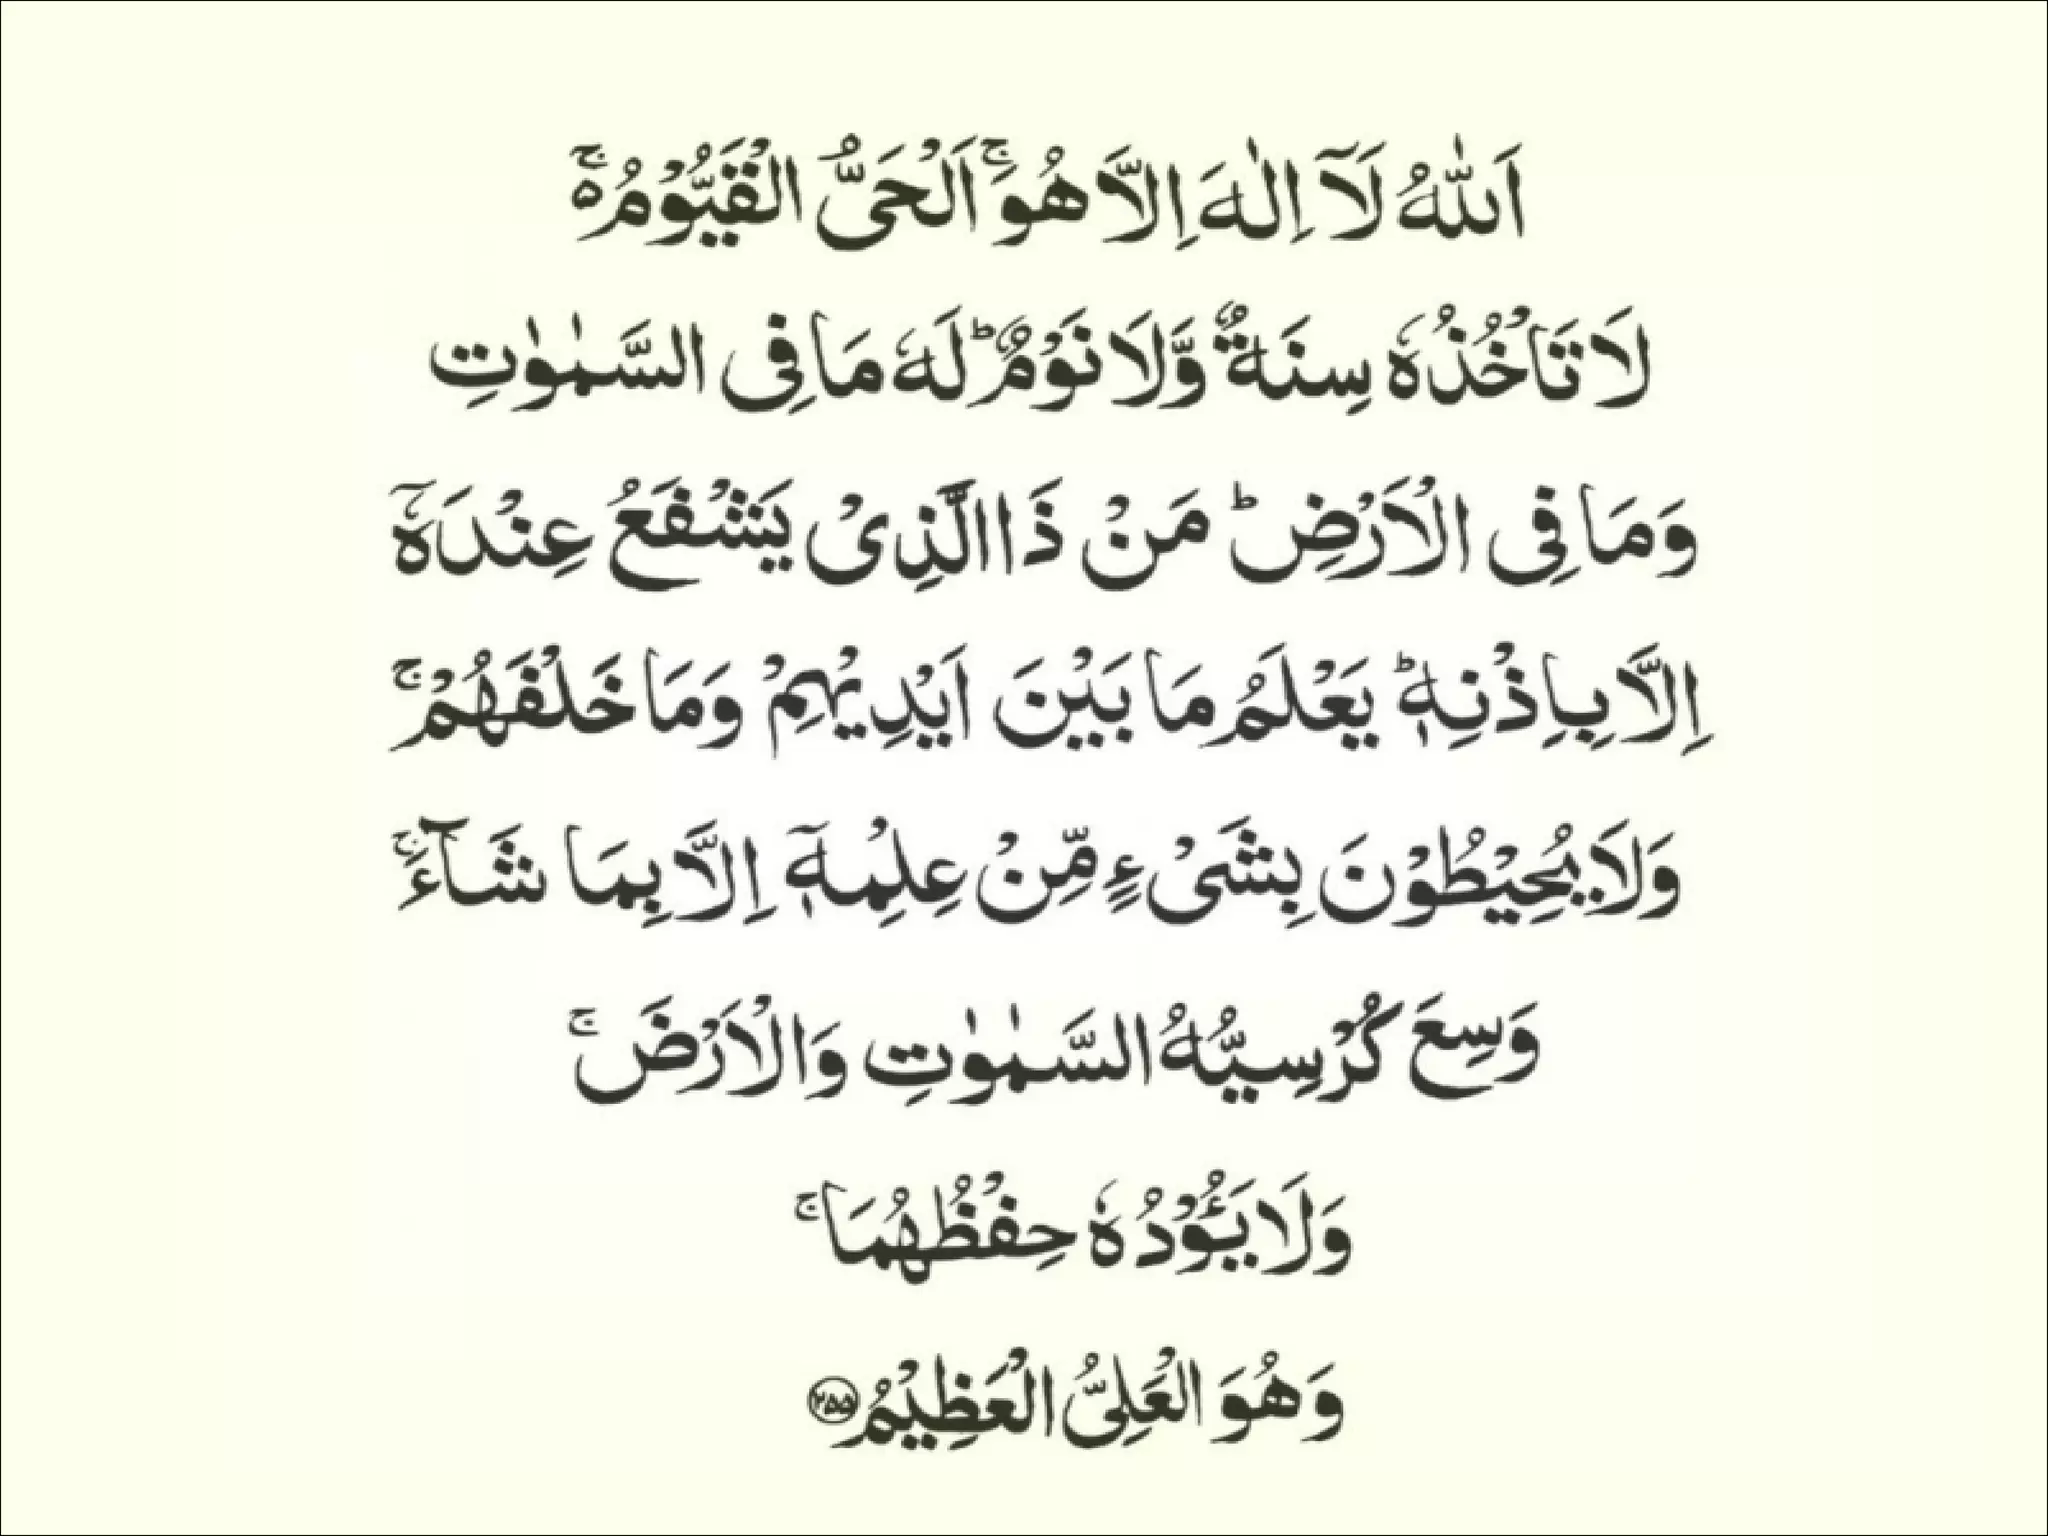 اَللّٰهُ لَاۤ اِلٰهَ اِلَّا هُوَۚ اَلْحَیُّ الْقَیُّوْمُ ە ۚ
لَا تَاْخُذُهٗ سِنَةٌ وَّلَا نَوْمٌؕ لَهٗ مَا فِی السَّمٰوٰتِ
وَمَا فِی الْاَرْضِؕ مَنْ ذَا الَّذِیْ یَشْفَعُ عِنْدَهٗۤ
اِلَّا بِاِذْنِهٖؕ یَعْلَمُ مَا بَیْنَ اَیْدِیْهِمْ وَمَا خَلْفَهُمْۚ
وَلَا یُحِیْطُوْنَ بِشَیْءٍ مِّنْ عِلْمِهٖۤ اِلَّا بِمَا شَآءَۚ
وَسِعَ كُرْسِیُّهُ السَّمٰوٰتِ وَالْاَرْضَۚ
وَلَا یَـُٔوْدُهٗ حِفْظُهُمَاۚ
وَهُوَ الْعَلِیُّ الْعَظِیْمُ ۝۲۵۵